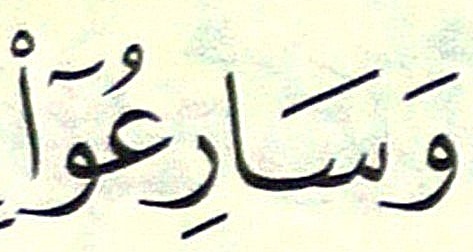 وَسَارِعُوٓا۟